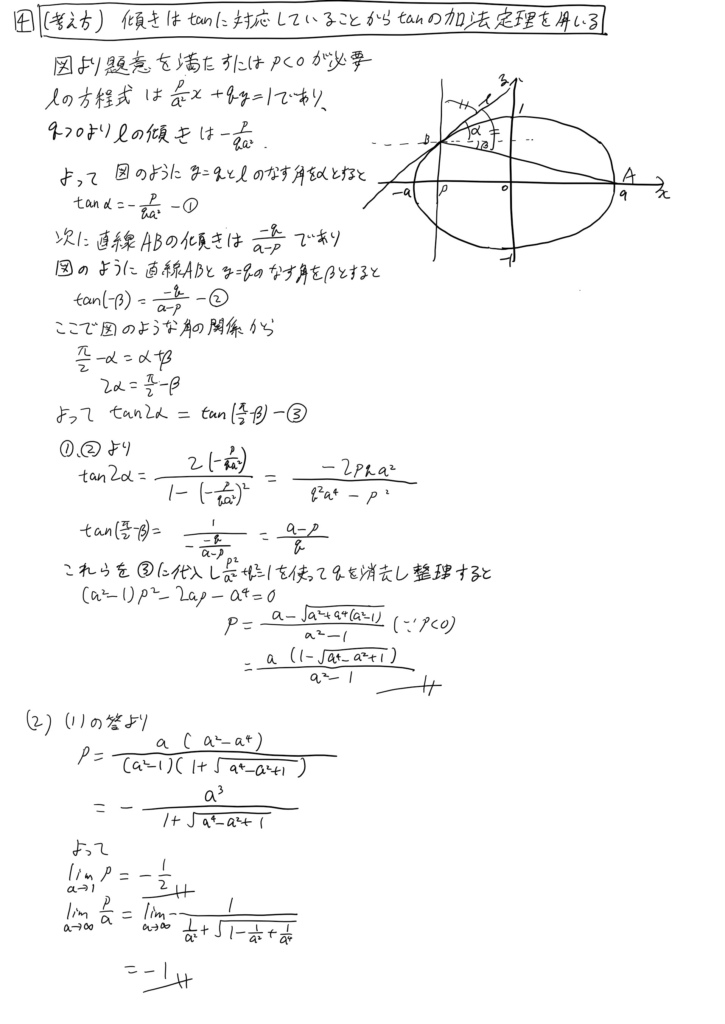 4 (考え方) 傾きはtanに対応していることからtanの加法定理を用いる
図より題意を満たすにはp<0が必要
lの方程式は p/a² x + qy = 1であり、
q>0よりlの傾きは -p/(qa²).
よって 図のようにy=qとlのなす角をαとすると
tanα = -p/(qa²) - ①
次に直線ABの傾きは -q/(a-p) であり
図のように直線ABとy=qのなす角をβとすると
tan(-β) = -q/(a-p) - ②
ここで図のような角の関係から
π/2 - α = α+β
2α = π/2 - β
よって tan2α = tan(π/2 - β) - ③
①,②より
tan2α = 2(-p/(qa²)) / (1-(-p/(qa²))²) = -2pqa² / (q²a⁴ - p²)
tan(π/2 - β) = 1 / (- -q/(a-p)) = (a-p)/q
これらを③に代入し p²/a² + q² = 1 を使ってqを消去し整理すると
(a²-1)p² - 2ap - a⁴ = 0
p = (a - √(a²+a⁴(a²-1))) / (a²-1) (∵p<0)
= a(1-√(a⁴-a²+1)) / (a²-1)
y
l
1
B
α
β
A
-a
p
0
a
x
-1
(2) (1)の答より
p = a(a²-a⁴) / ((a²-1)(1+√(a⁴-a²+1)))
= - a³ / (1+√(a⁴-a²+1))
よって
lim a→1 p = -1/2
lim a→∞ p/a = lim a→∞ - 1 / (1/a² + √(1 - 1/a² + 1/a⁴))
= -1